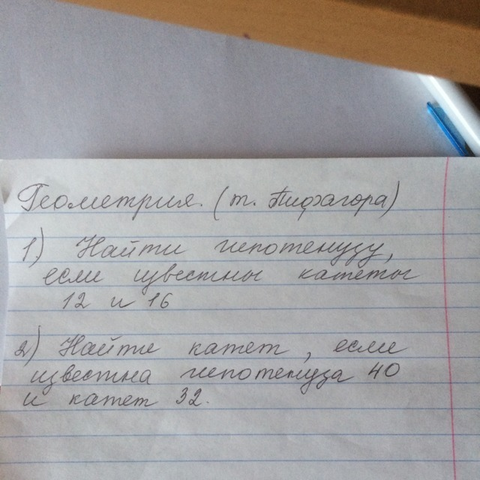 Геометрия. (т. Пифагора)
1) Найти гипотенузу,
если известны катеты
12 и 16
2) Найти катет, если
известна гипотенуза 40
и катет 32.